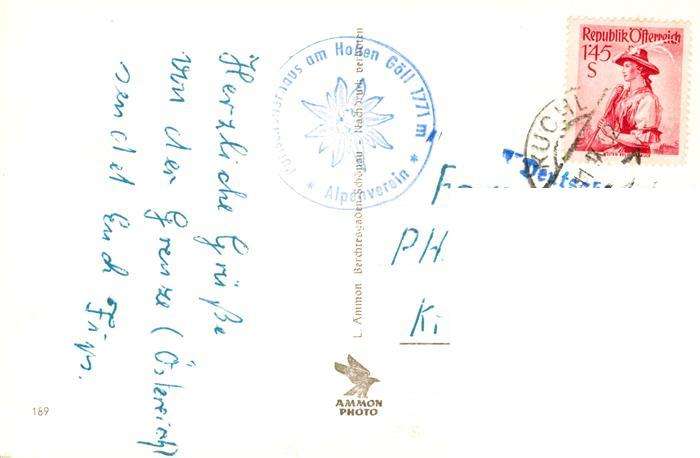 Herzliche Grüße
von der Grenze (Österreich)
sendet Euch
am Hohen Göll 1771 m
* Alpenverein *
L. Ammon Berchtesgaden-Schönau - Nachdruck verboten
Republik Österreich
1'45
S
KUCHL
PH
Ki
AMMON
PHOTO
189